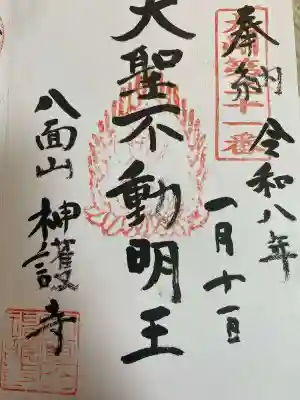 奉納
令和八年
一月十一日
大聖不動明王
八面山 神護寺